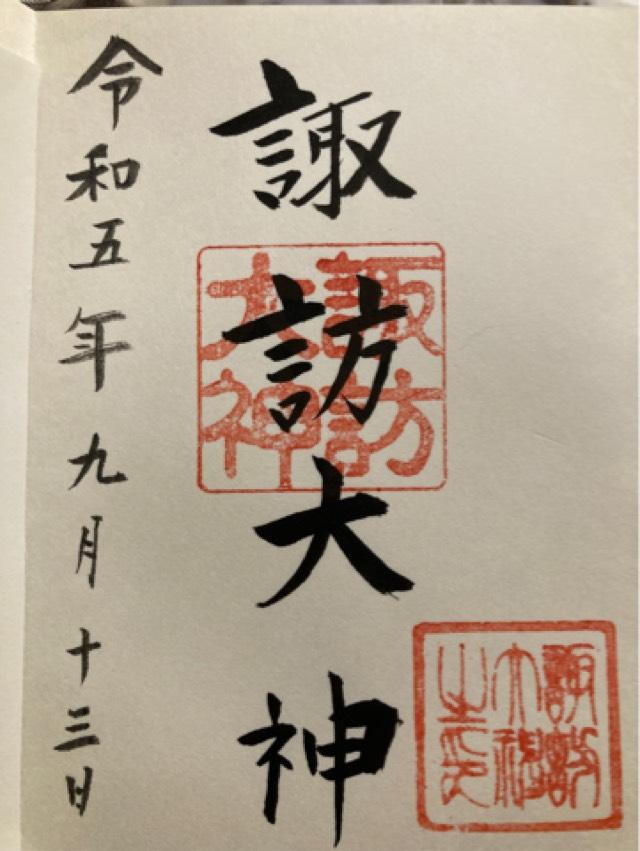 諏訪大神
令和五年九月十三日
諏訪
大神
諏訪
大神
之印